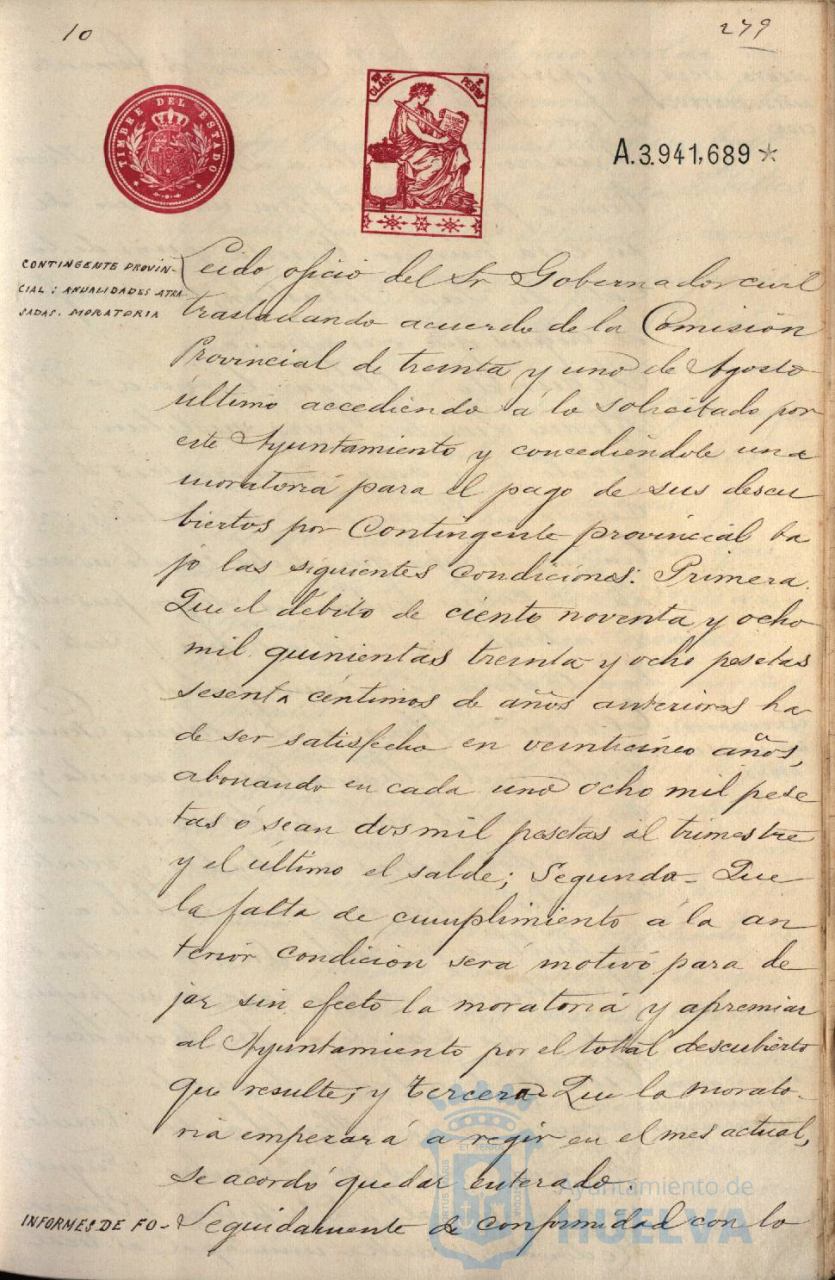 10
279
TIMBRE DEL ESTADO
CLASE
PESETAS
A.3.941,689
CONTINGENTE PROVIN-
CIAL: ANUALIDADES ATRA
SADAS. MORATORIA
Leido oficio del Sr Gobernador civil
trasladando acuerdo de la Comisión
Provincial de treinta y uno de Agosto
último accediendo á lo solicitado por
este Ayuntamiento y concediéndole una
moratoria para el pago de sus descu
biertos por Contingente provincial ba
jo las siguientes condiciones: Primera.
Que el débito de ciento noventa y ocho
mil quinientas treinta y ocho pesetas
sesenta céntimos de años anteriores ha
de ser satisfecho en veinticinco años,
abonando en cada uno ocho mil pese
tas ó sean dos mil pesetas al trimestre
y el último el saldo; Segunda- Que
la falta de cumplimiento á la an
terior condición será motivo para de
jar sin efecto la moratoria y apremiar
al Ayuntamiento por el total descubierto
que resulte; y tercera Que la morato-
ria emperará a regir en el mes actual,
se acordó quedar enterado.
INFORMES DE FO-
Seguidamente de conformidad con lo
Ayuntamiento de
HUELVA